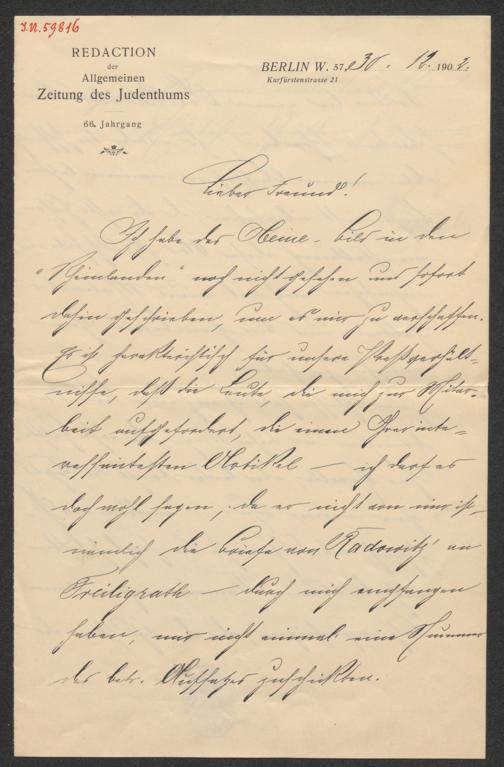 I.N. 59816
REDACTION
der
Allgemeinen
Zeitung des Judenthums
66. Jahrgang
BERLIN W. 57, d 30. 12. 1902.
Kurfürstenstrasse 21
Lieber Freund!
Ich habe das Heine-Bild in den
"Rheinlanden" noch nicht gesehen und sofort
dahin geschrieben, um es mir zu verschaffen.
Es ist charakteristisch für unsere Preßverhält-
nisse, daß die Leute, die mich zur Mitar-
beit aufgefordert, die einen ihrer inte-
ressantesten Artikel — ich darf es
doch wohl sagen, da er nicht von mir ist,
nämlich die Briefe von Radowitz' an
Freiligrath — durch mich empfangen
haben, mir nicht einmal eine Nummer
des betr. Aufsatzes zuschickten.